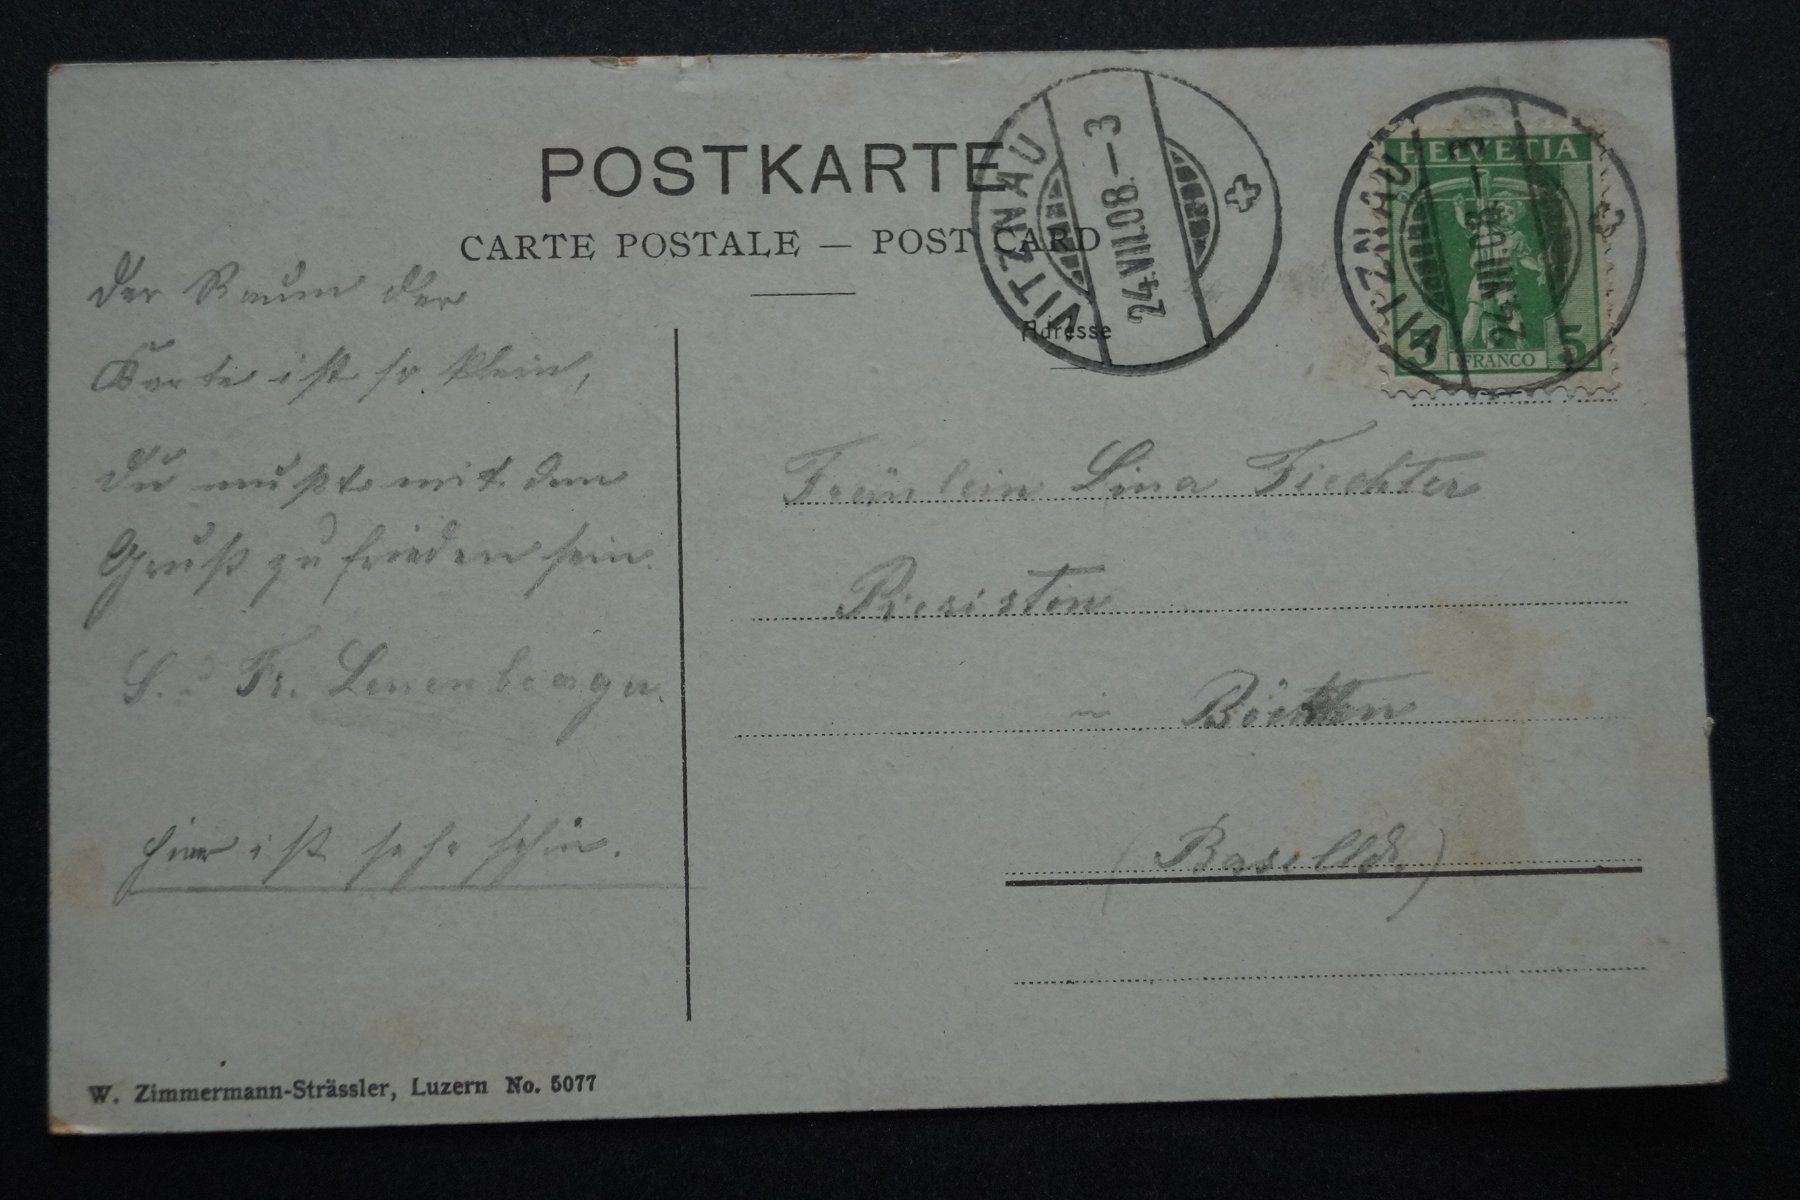 POSTKARTE
CARTE POSTALE — POST CARD
Adresse
VITZNAU
24.VII.08.—3
HELVETIA
5 FRANCO 5
VITZNAU
24.VII.08.—3
Der Raum der
Karte ist so klein,
Du mußt mit dem
Gruß zufrieden sein.
Fr. Leuenberger.
Hier ist sehr schön.
Fräulein Lina Fiechter
in Böckten
(Baselld.)
W. Zimmermann-Strässler, Luzern No. 5077